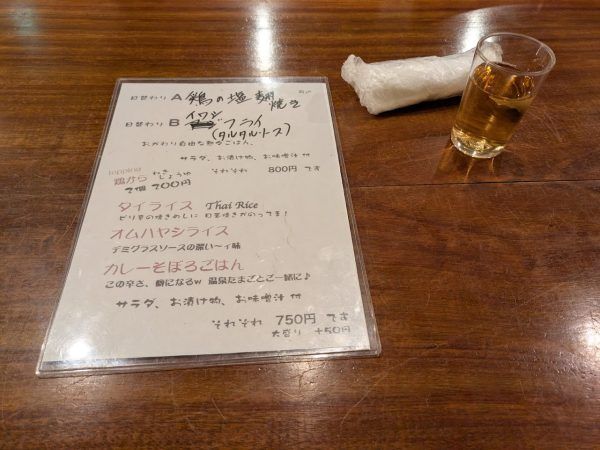 日替わり A 鶏の塩麹焼き
日替わり B イワシフライ
(タルタルソース)
おかわり自由な熱々ごはん、
サラダ、お漬け物、お味噌汁 付
それぞれ 800円 です
topping
鶏から わさびじょうゆ
2個 200円
タイライス Thai Rice
ピリ辛の焼きめしに 目玉焼きがのってま!
オムハヤシライス
デミグラスソースの深い~ィ味
カレーそぼろごはん
この辛さ、癖になるw 温泉たまごとご一緒に♪
サラダ、お漬け物、お味噌汁 付
それぞれ 750円 です
大盛り +50円